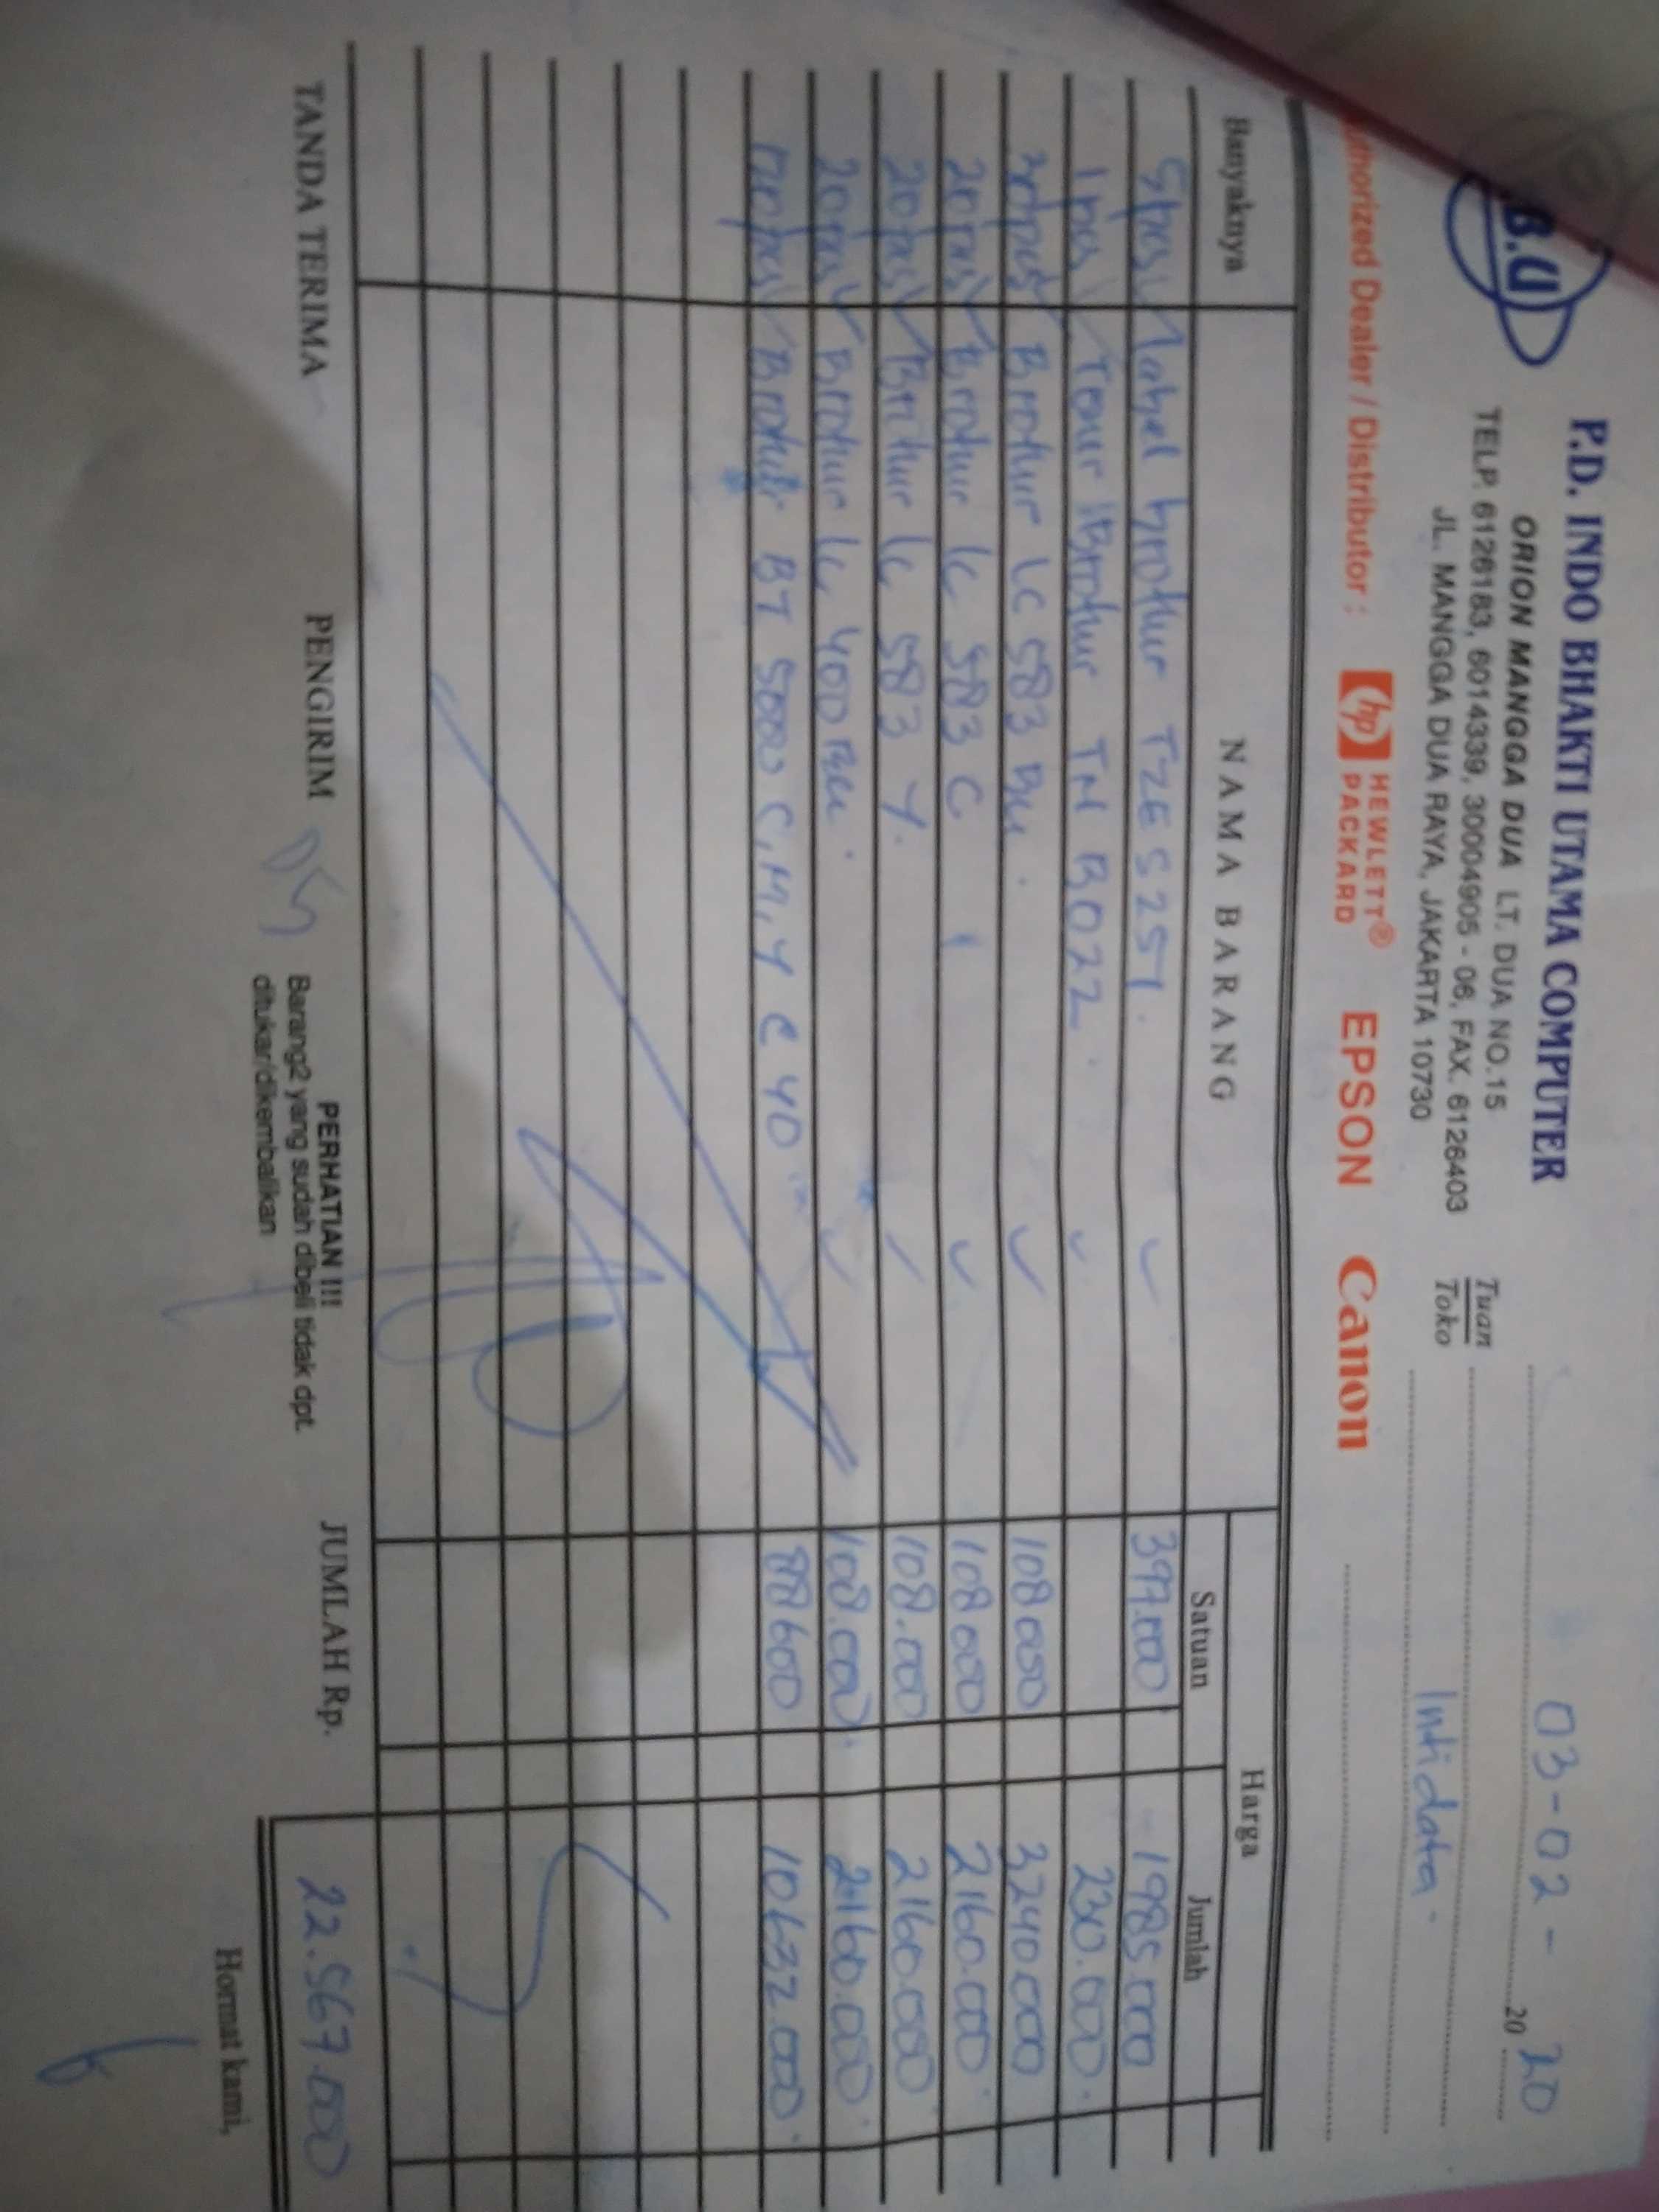 B.U
P.D. INDO BHAKTI UTAMA COMPUTER
ORION MANGGA DUA LT. DUA NO.15
TELP. 6126183, 6014339, 30004905 - 06, FAX. 6126403
JL. MANGGA DUA RAYA, JAKARTA 10730
03-02- 20 20
Tuan
Toko
Inti data
Authorized Dealer / Distributor : hp HEWLETT® PACKARD EPSON Canon
Banyaknya NAMA BARANG Harga
Satuan Jumlah
5 pcs label brother TZE S251. 397.000 1985.000
1 pcs Toner Brother TN B022 230.000
30 pcs Brother LC 583 108000 3240.000
20 pcs Brother LC 583 C 108000 2160.000
20 pcs Brother LC 583 Y. 108.000 2160.000
20 pcs Brother LC 400 108.000 2160.000
120 pcs Brother BT 5000 C,M,Y C 40 88600 10632.000
TANDA TERIMA PENGIRIM
PERHATIAN !!!
Barang2 yang sudah dibeli tidak dpt.
ditukar/dikembalikan
JUMLAH Rp. 22.567.000
Hormat kami,